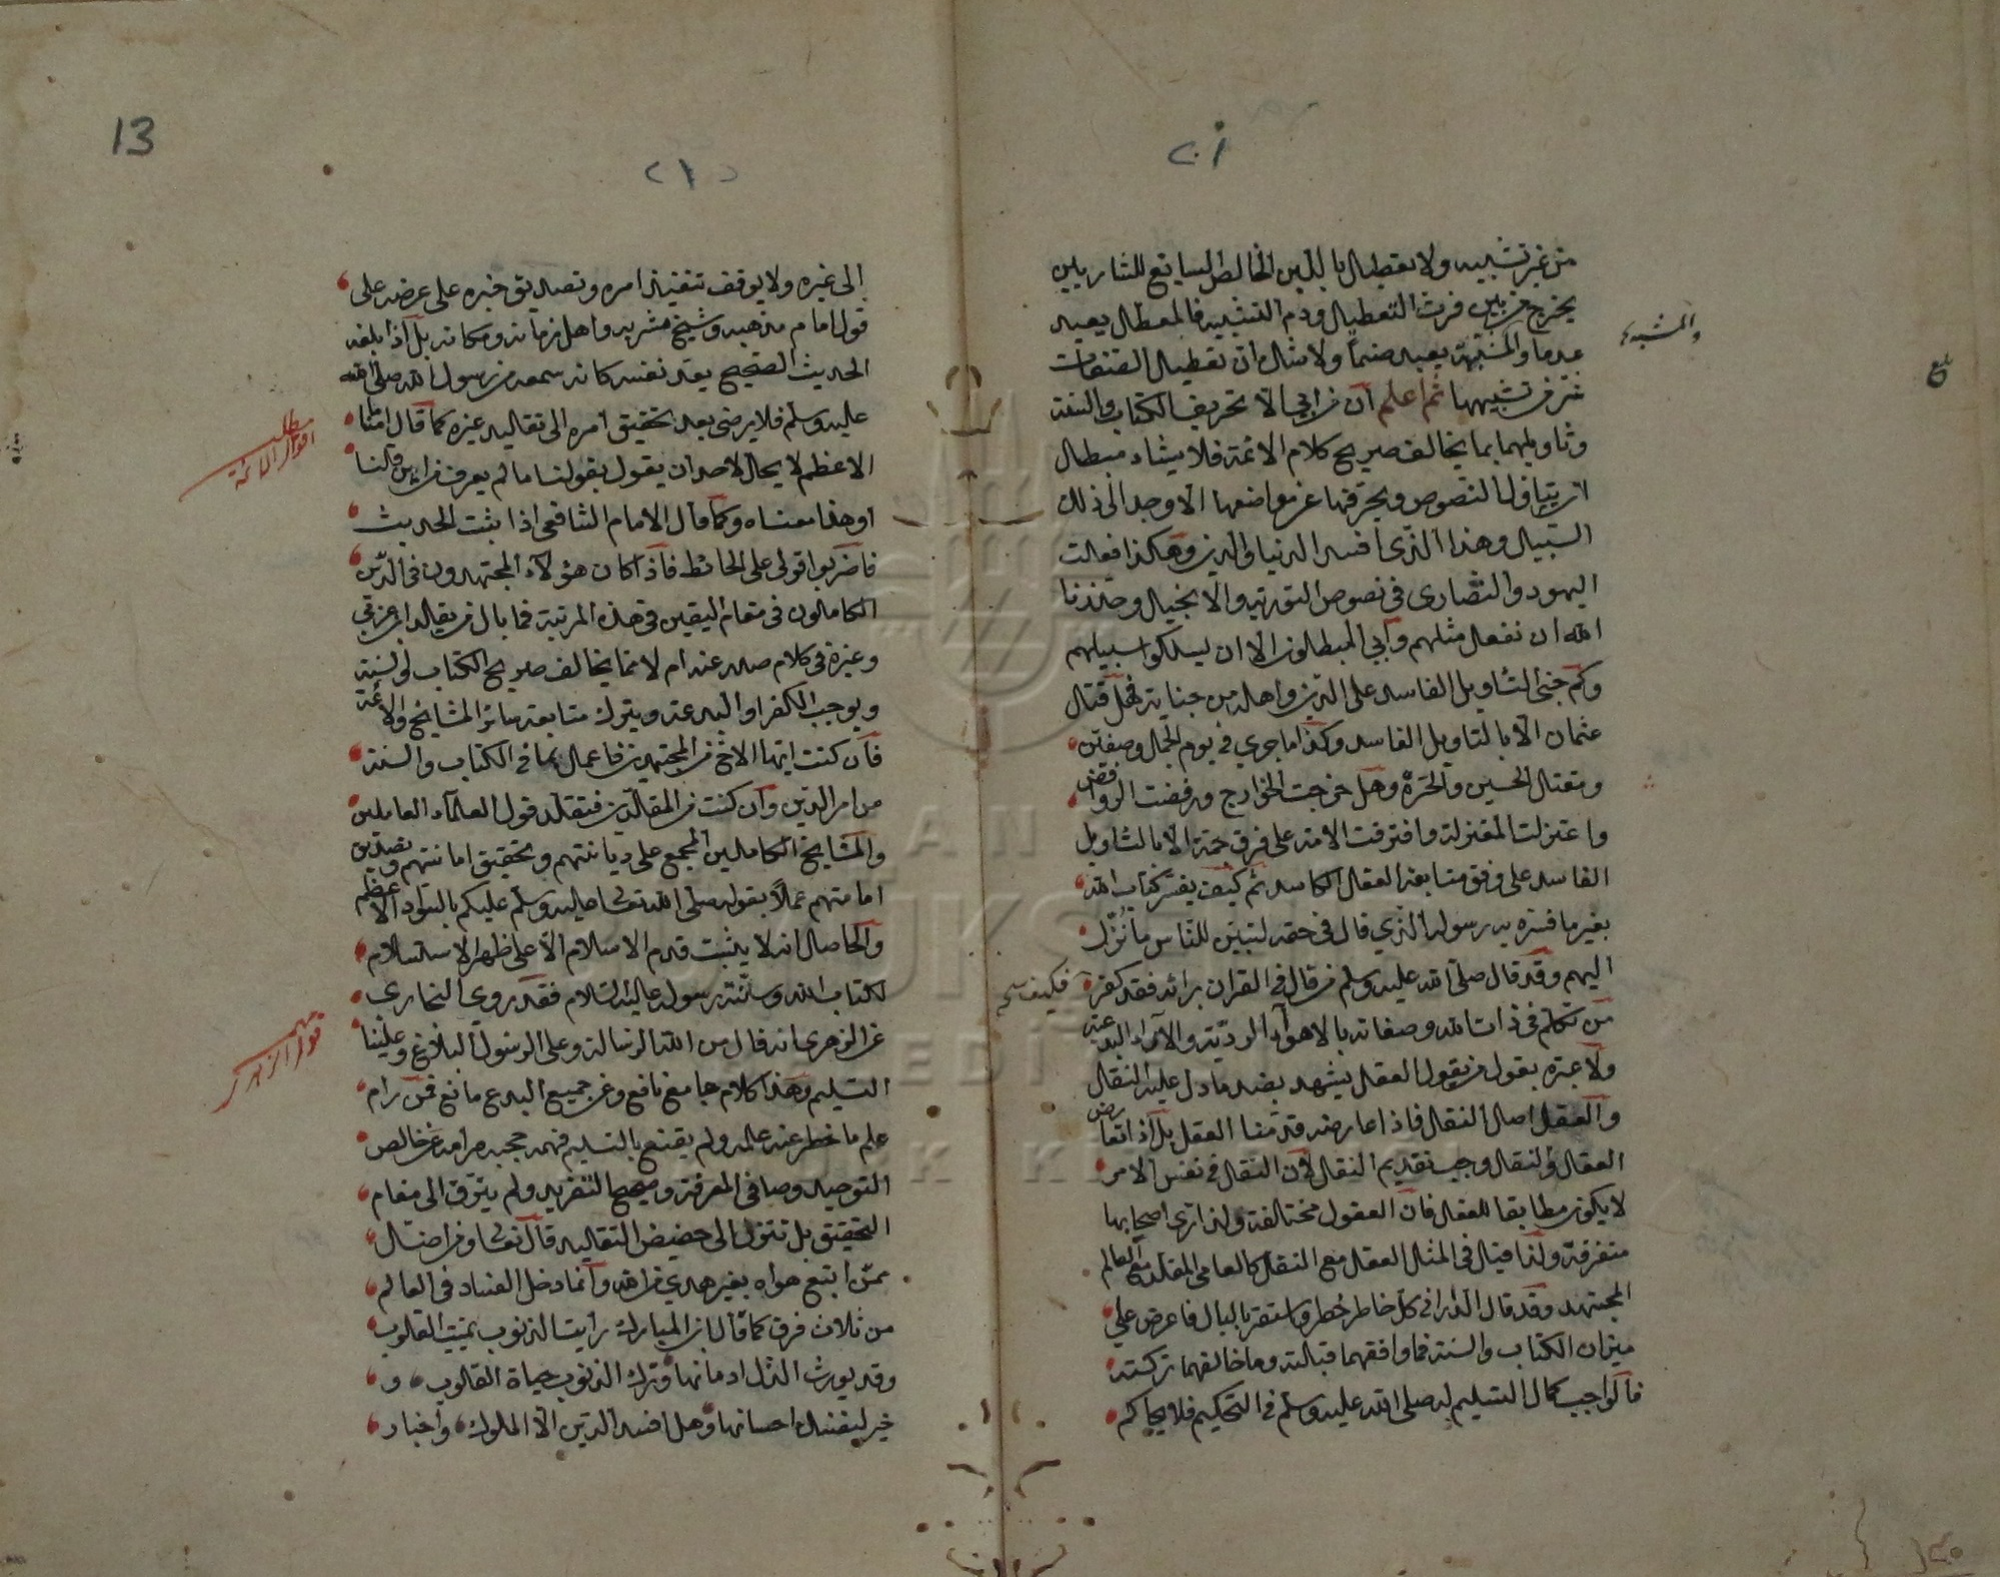 من غير تشبيه ولا تعطيل باللبن الخالص السايغ للشاربين
يخرج من بين فرث التعطيل ودم التشبيه فالمعطل يعبد
عدما والمشبهة يعبد صنما ولا شك ان تعطيل الصفات
شر من تشبيهها ثم اعلم ان
تحريف الكتاب والسنة
وتأويلهما بما يخالف صريح كلام الائمة فلا يشاء مبطل
ان يتأول النصوص ويحرفها عن مواضعها الا وجد الى ذلك
السبيل وهذا الذى افسد الدنيا والدين وهكذا فعلت
اليهود والنصارى فى نصوص التورية والانجيل وحذرنا
الله ان نفعل مثلهم وابى المبطلون الا ان يسلكوا سبيلهم
وكم جنى التأويل الفاسد على الدين واهله من جناية فهل قتل
عثمان الا بالتاويل الفاسد وكذا ما جرى فى يوم الجمل وصفين
ومقتل الحسين والحرة وهل خرجت الخوارج ورفضت الروافض
واعتزلت المعتزلة وافترقت الامة على فرق جمة الا بالتاويل
الفاسد على وفق متابعة العقل الكاسد ثم كيف يفسر كتاب الله
بغير ما فسره به رسوله الذي قال فى حقه لتبين للناس ما نزل
اليهم وقد قال صلى الله عليه وسلم من قال فى القران برائه فقد كفر
من تكلم فى ذات الله وصفاته بالاهواء الردية والاراء البدعة
ولا عبرة بقول من يقول العقل يشهد بضد ما دل عليه النقل
والعقل اصل النقل فاذا عارضه قدمنا العقل بل اذا تعارض
العقل والنقل وجب تقديم النقل لان النقل فى نفس الامر
لا يكون مطابقا للعقل فان العقول مختلفة ولذا ترى اصحابها
متفرقة ولذا قيل فى المثل العقل مع النقل كالعامى المقلد مع العالم
المجتهد وقد قال الدارانى كل خاطر خطر واستقر بالبال فاعرض على
ميزان الكتاب والسنة فما وافقهما قبلته وما خالفهما تركته
فالواجب كمال التسليم له صلى الله عليه وسلم فى التحكيم فلا يحاكم
والمشبه
فكيف
13
الى غيره ولا يوقف تنفيذ امره وتصديق خبره على عرضه على
قول امام مذهبه وشيخ مشربه واهل زمانه ومكانه بل اذا بلغه
الحديث الصحيح يعد نفسه كانه سمعه من رسول الله صلى الله
عليه وسلم فلا يرضى بعد تحقيق امره الى تقليد غيره كما قال امامنا
الاعظم لا يحل لاحد ان يقول بقولنا ما لم يعرف من اين قلنا
او هذا معناه وكما قال الامام الشافعى اذا ثبت الحديث
فاضربوا قولى على الحائط فاذا كان هؤلاء المجتهدون فى الدين
الكاملون فى مقام اليقين فى هذه المرتبة فما بال من
وغيره فى كلام صدر عندهم لا نما يخالف صريح الكتاب والسنة
ويوجب الكفر او البدعة ويترك متابعة سائر المشايخ والائمة
فان كنت ايها الاخ من المجتهدين فاعمل بما فى الكتاب والسنة
من امر الدين وان كنت من المقلدين فتقلد قول العلماء العاملين
والمشايخ الكاملين المجمع على ديانتهم وتحقيق امانتهم وتصديق
امامتهم عملا بقوله صلى الله تعالى عليه وسلم عليكم بالسواد الاعظم
والحاصل انه لا يثبت قدم الاسلام الا على ظهر الاستسلام
لكتاب الله وسنة رسوله عليه السلام فقد روى البخارى
عن الزهرى انه قال من الله الرسالة وعلى الرسول البلاغ وعلينا
التسليم وهذا كلام جامع نافع وعن جميع البدع مانع فمن رام
علم ما خطر عنه علمه ولم يقنع بالتسليم فهمه حجبه مرامه عن خالص
التوحيد وصافى المعرفة وصحيح التفريد ولم يترق الى مقام
التحقيق بل تنزل الى حضيض التقليد قال تعالى ومن اضل
ممن اتبع هواه بغير هدى من الله وانما دخل الفساد فى العالم
من ثلاث فرق كما قال ابن المبارك رايت الذنوب تميت القلوب
وقد يورث الذل ادمانها وترك الذنوب حياة القلوب و
خير لنفسك احسانها وهل افسد الدين الا الملوك واخبار
مطلب
اقوال الائمة
مهم
قول الزهرى